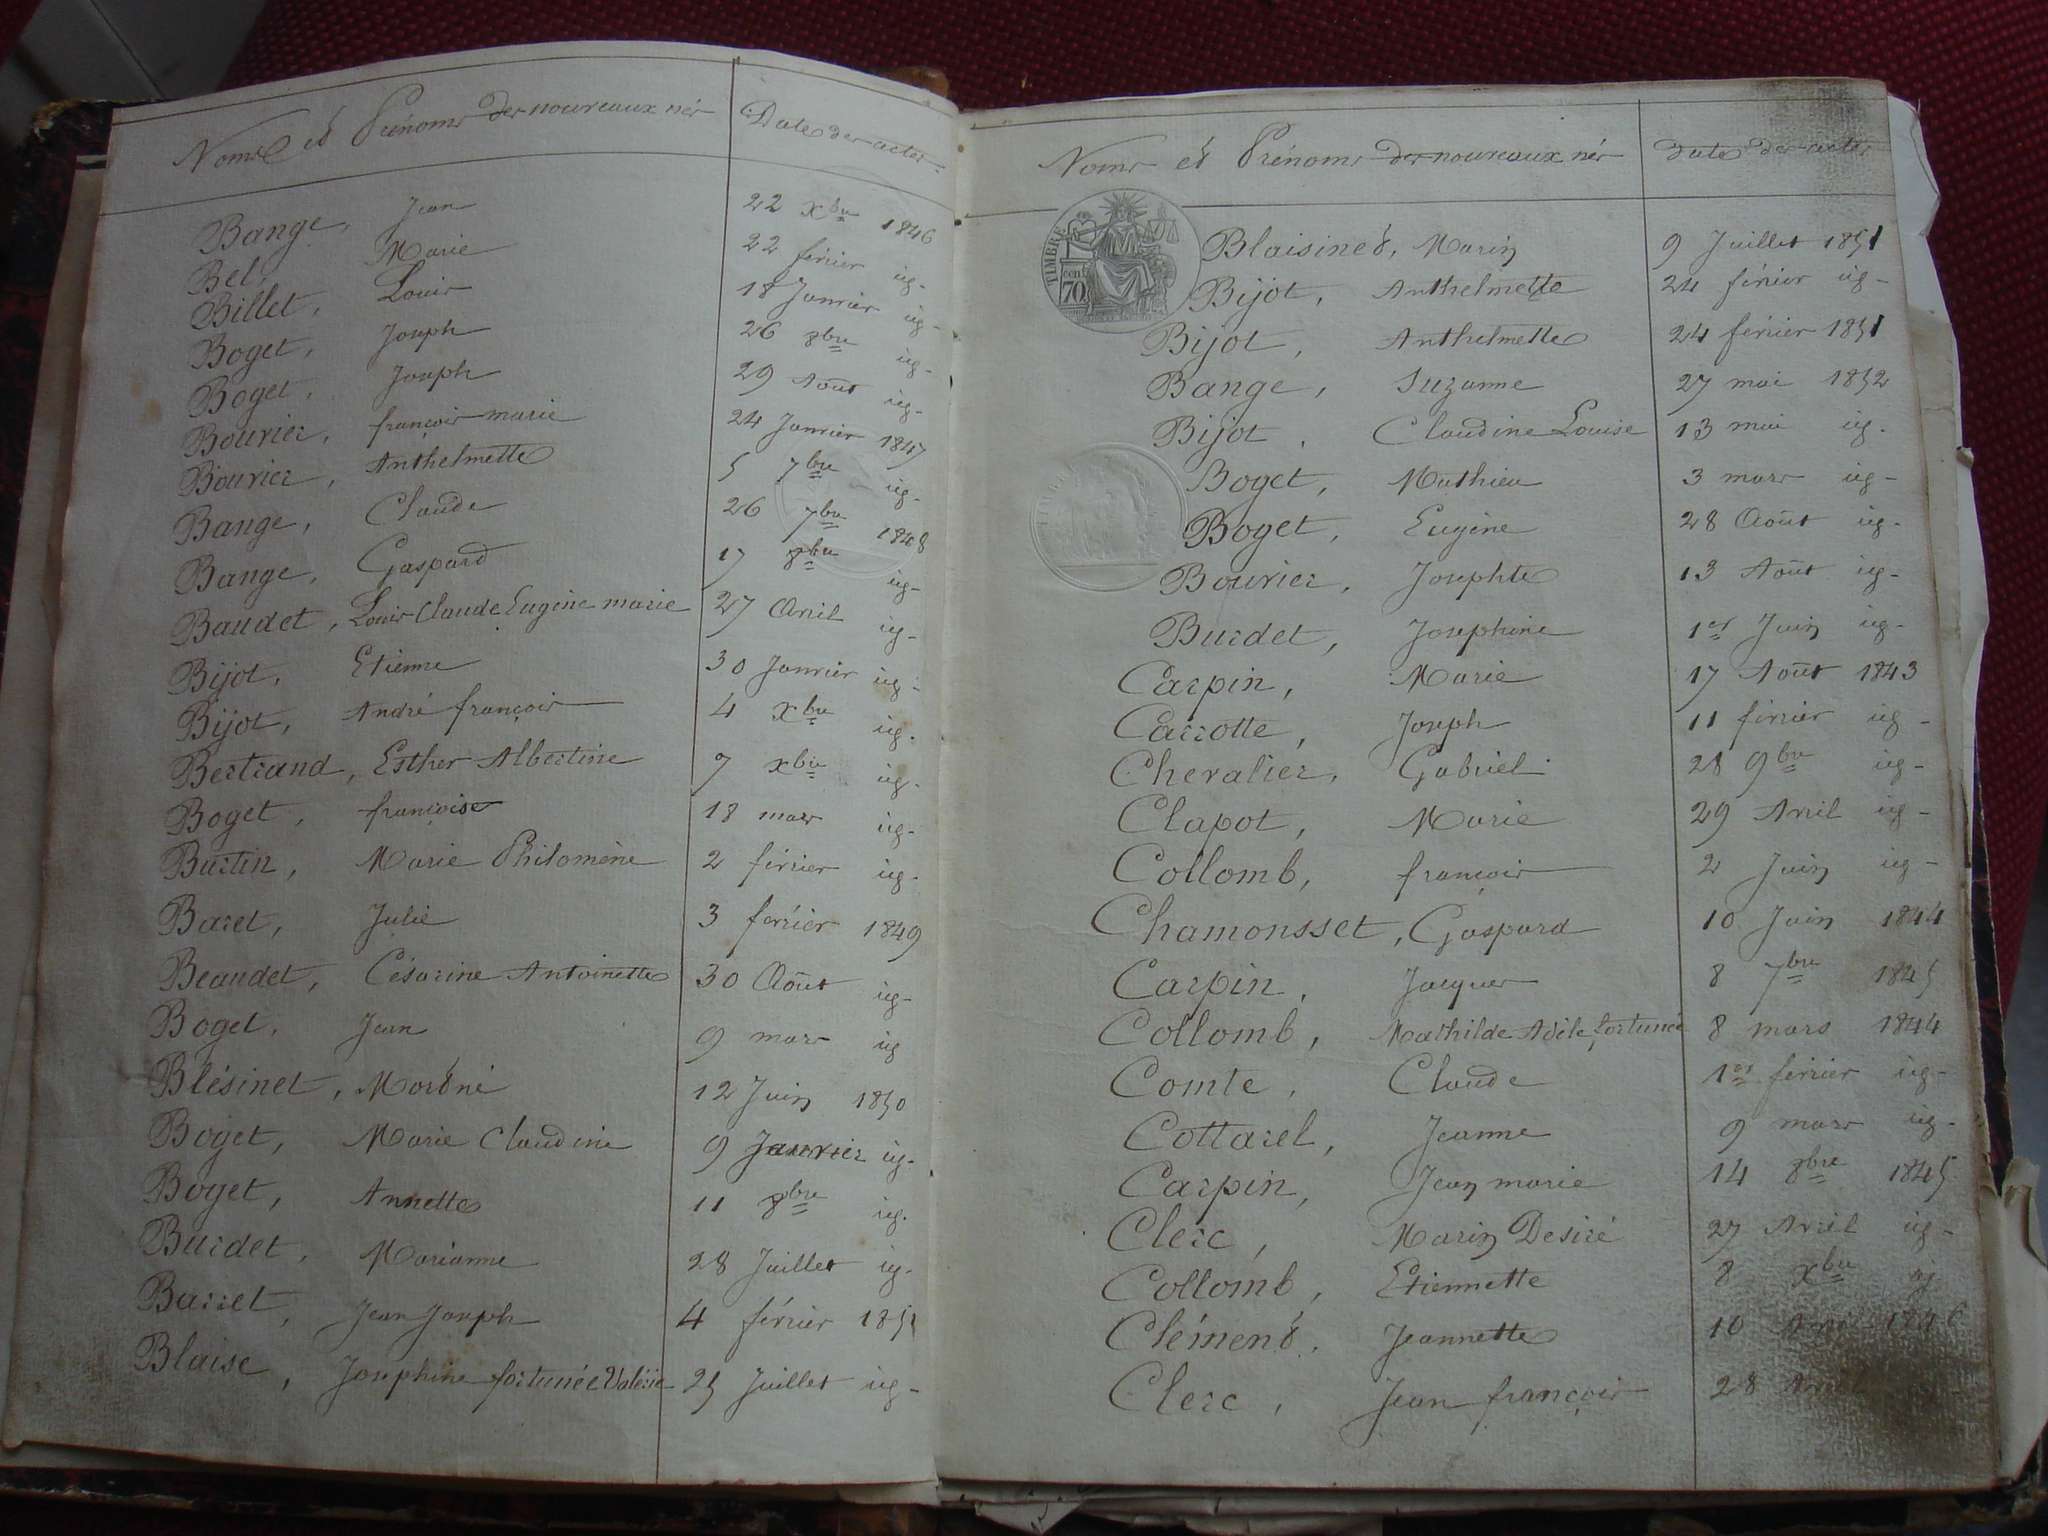 Noms et Prénoms des nouveaux nés Date des actes
Bange, Jean 22 Xbre 1846
Bel, Marie 22 février ig-
Billet, Louis 18 Janvier ig-
Boget, Joseph 26 8bre ig-
Boget, Joseph 29 Août ig-
Bourier, françois marie 24 Janvier 1847
Bourier, Anthelmette 5 7bre ig-
Bange, Claude 26 7bre 1848
Bange, Gaspard 17 8bre ig-
Baudet, Louis Claude Eugène marie 27 Avril ig-
Bijot, Etienne 30 Janvier ig-
Bijot, André françois 4 Xbre ig-
Bertrand, Esther Albertine 7 Xbre ig-
Boget, françoise 18 mars ig-
Burtin, Marie Philomène 2 février ig-
Baret, Julie 3 février 1849
Beaudet, Césarine Antoinette 30 Août ig-
Boget, Jean 9 mars ig
Blésinet, 12 Juin 1850
Boget, Marie Claudine 9 Janvier ig-
Boget, Annette 11 8bre ig-
Burdet, Marianne 28 Juillet ig-
Barret, Jean Joseph 4 février 1851
Blaise, Josephine fortunée Valérie 25 Juillet ig-
Noms et Prénoms des nouveaux nés Date des actes
TIMBRE
70 cen
Blaisinet, Marin 9 Juillet 1851
Bijot, Anthelmette 24 février ig-
Bijot, Anthelmette 24 février 1851
Bange, Suzanne 27 mai 1852
Bijot, Claudine Louise 13 mai ig-
Boget, Mathieu 3 mars ig-
Boget, Eugène 28 Août ig-
Bourier, Josephte 13 Août ig-
Burdet, Josephine 1er Juin ig-
Carpin, Marie 17 Août 1843
Carrotte, Joseph 11 février ig-
Chevalier, Gabriel 28 9bre ig-
Clapot, Marie 29 Avril ig-
Collomb, françois 2 Juin ig-
Chamonsset, Gaspard 10 Juin 1844
Carpin, Jacques 8 7bre 1845
Collomb, Mathilde Adèle fortunée 8 mars 1844
Comte, Claude 1er février ig-
Cottarel, Jeanne 9 mars ig-
Carpin, Jean marie 14 8bre 1845
Clerc, Marin Desiré 27 Avril ig-
Collomb, Etiennette 8 Xbre ig
Clément, Jeannette 10 Avril 1846
Clerc, Jean françois 28 Avril